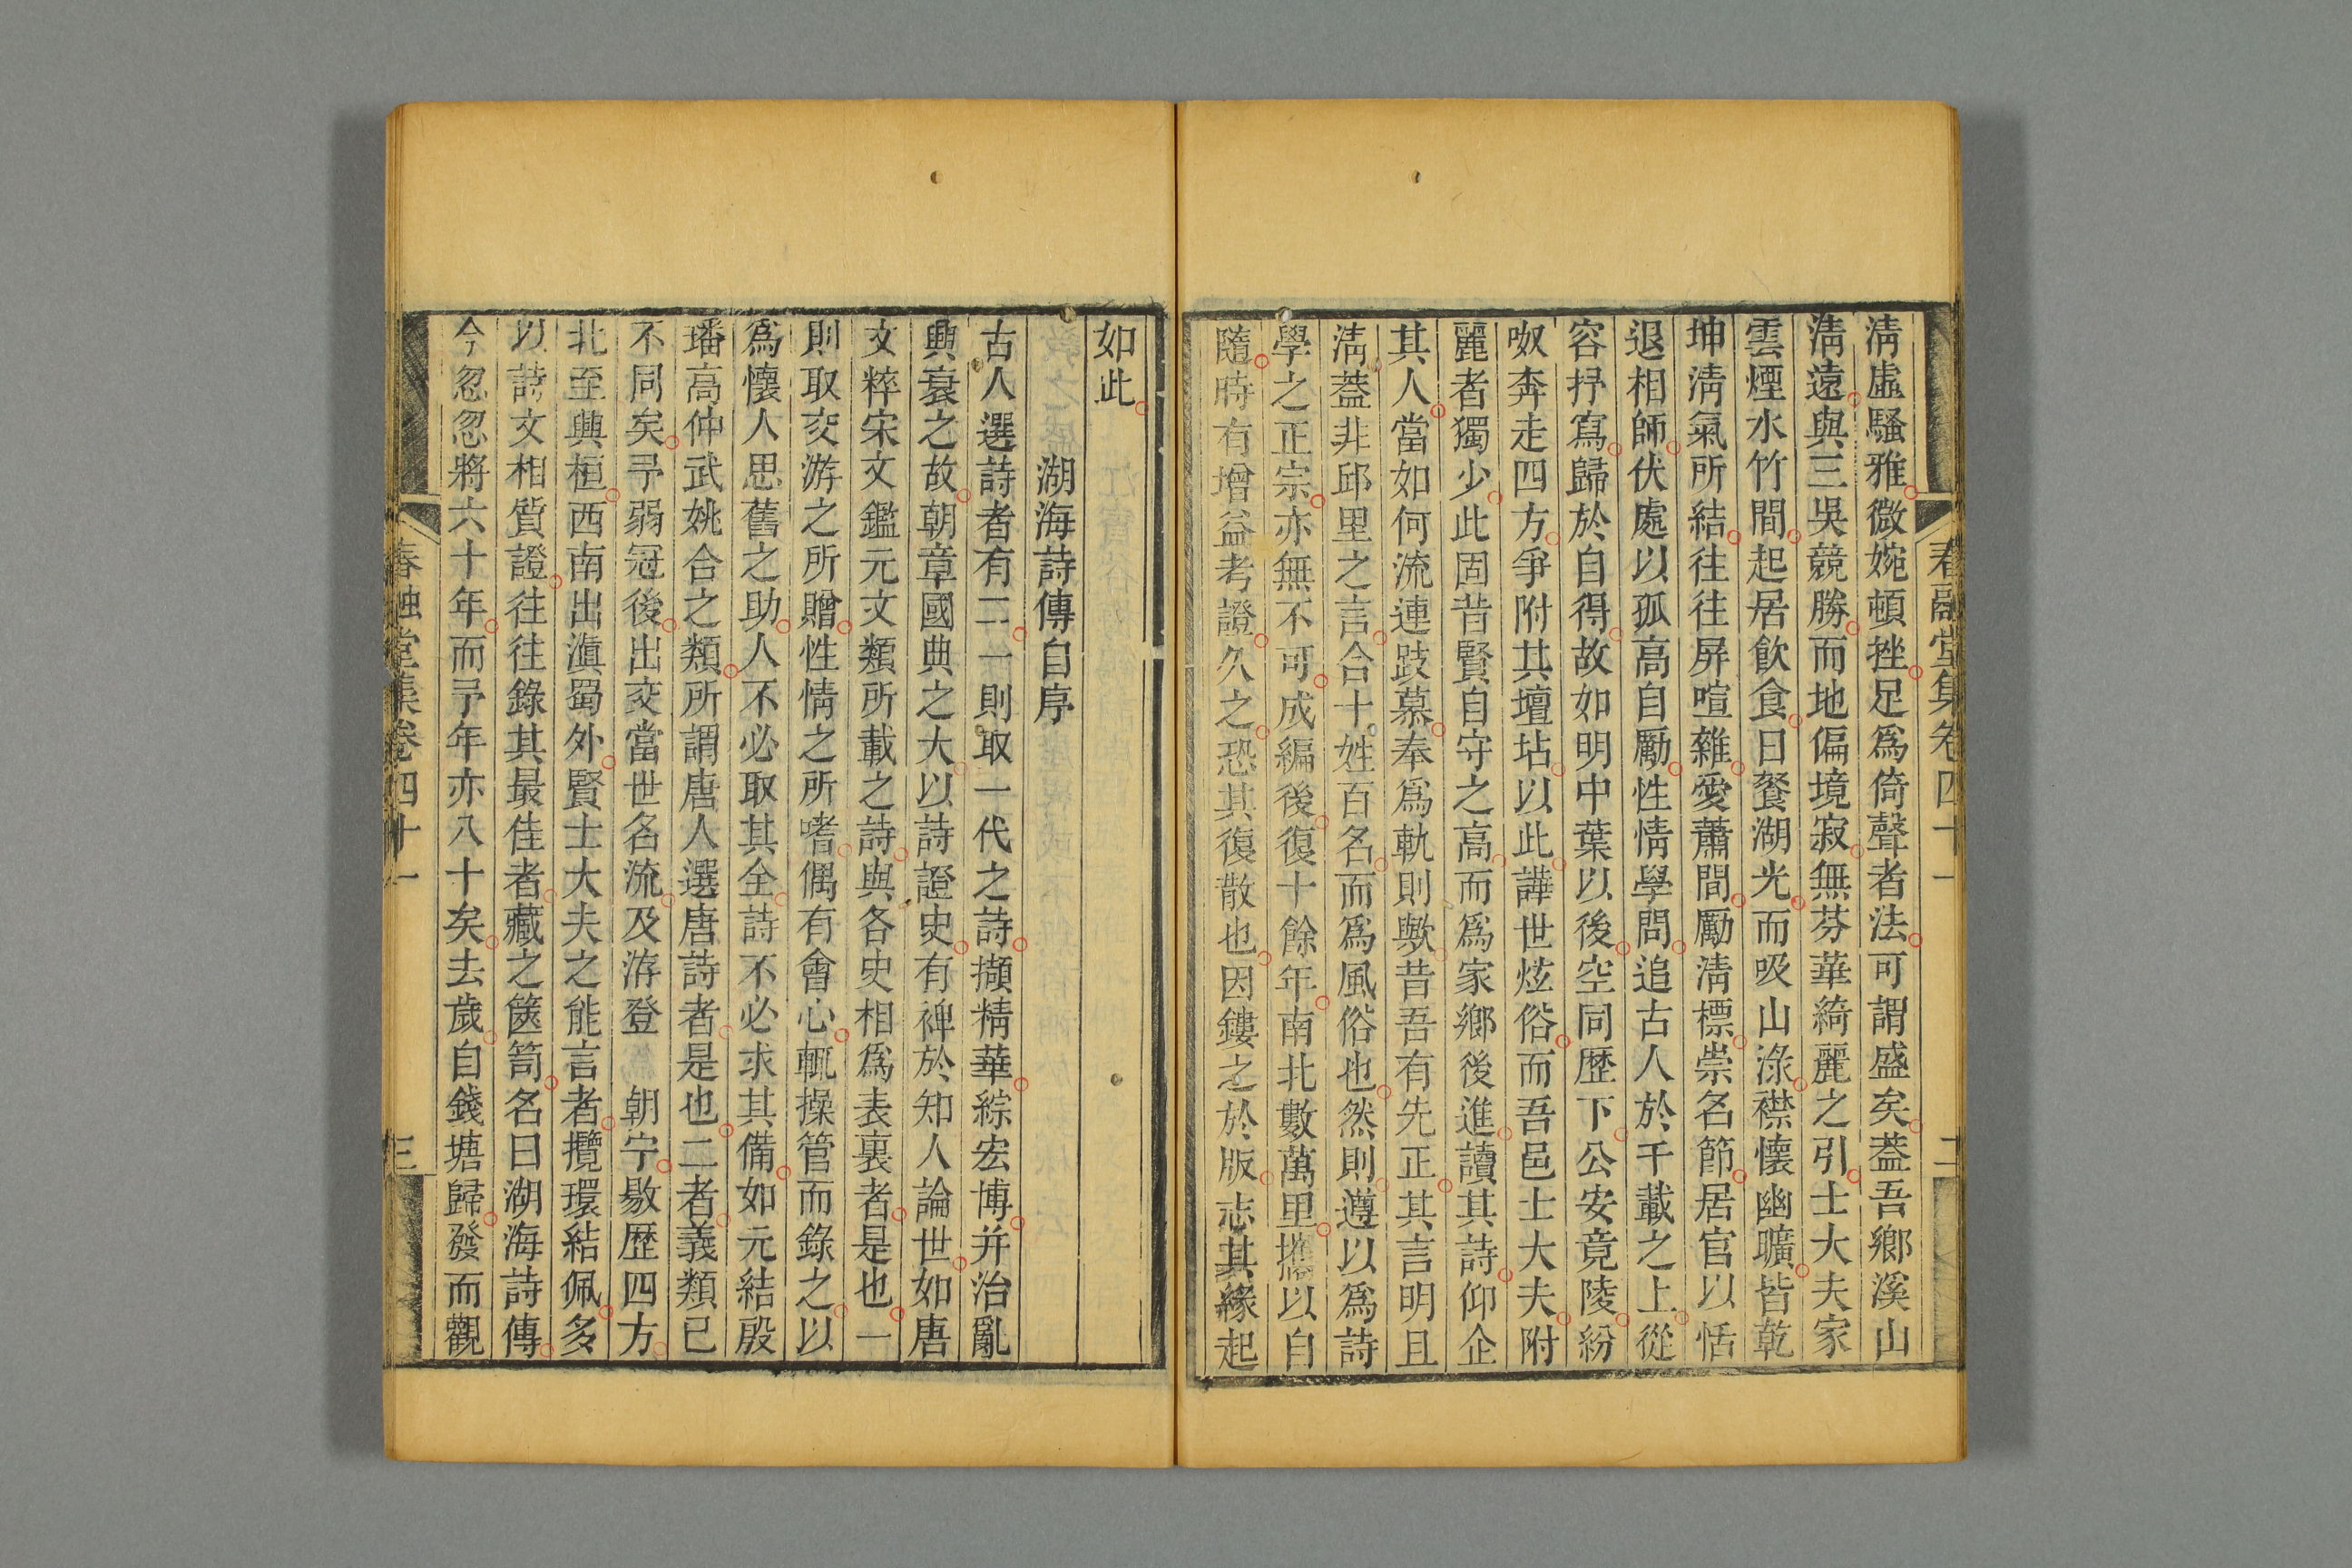 春融堂集卷四十一
二
清虛騷雅微婉頓挫足爲倚聲者法可謂盛矣葢吾鄉溪山
清遠與三吳競勝而地偏境寂無芬華綺麗之引士大夫家
雲煙水竹間起居飮食日餐湖光而吸山淥襟懷幽曠皆乾
坤淸氣所結往往屏喧雜愛蕭閒勵淸標崇名節居官以恬
退相師伏處以孤高自勵性情學問追古人於千載之上從
容抒寫歸於自得故如明中葉以後空同歷下公安竟陵紛
呶奔走四方爭附其壇坫以此譁世炫俗而吾邑士大夫附
麗者獨少此固昔賢自守之高而爲家鄉後進讀其詩仰企
其人當如何流連跂慕奉爲軌則歟昔吾有先正其言明且
淸葢非邱里之言合十姓百名而爲風俗也然則遵以爲詩
學之正宗亦無不可成編後復十餘年南北數萬里攜以自
隨時有增益考證久之恐其復散也因鏤之於版志其緣起
如此
湖海詩傳自序
古人選詩者有二一則取一代之詩擷精華綜宏博并治亂
興衰之故朝章國典之大以詩證史有裨於知人論世如唐
文粹宋文鑑元文類所載之詩與各史相爲表裏者是也一
則取交游之所贈性情之所嗜偶有會心輒操管而錄之以
爲懷人思舊之助人不必取其全詩不必求其備如元結殷
璠高仲武姚合之類所謂唐人選唐詩者是也二者義類已
不同矣予弱冠後出交當世名流及游登　朝宁敭歷四方
北至興桓西南出滇蜀外賢士大夫之能言者攬環結佩多
以詩文相質證往往錄其最佳者藏之篋笥名曰湖海詩傳
今忽忽將六十年而予年亦八十矣去歲自錢塘歸發而觀
春融堂集卷四十一
三